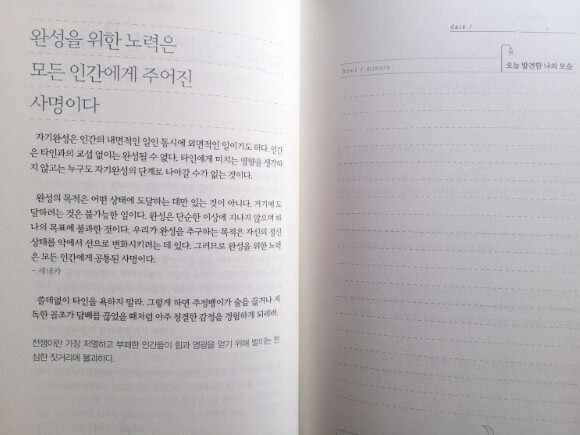 완성을 위한 노력은
모든 인간에게 주어진
사명이다
자기완성은 인간의 내면적인 일인 동시에 외면적인 일이기도 하다. 인간
은 타인과의 교섭 없이는 완성될 수 없다. 타인에게 미치는 영향을 생각하
지 않고는 누구도 자기완성의 단계로 나아갈 수가 없는 것이다.
완성의 목적은 어떤 상태에 도달하는 데만 있는 것이 아니다. 거기에 도
달하려는 것은 불가능한 일이다. 완성은 단순한 이상에 지나지 않으며 하
나의 목표에 불과한 것이다. 우리가 완성을 추구하는 목적은 자신의 정신
상태를 악에서 선으로 변화시키려는 데 있다. 그러므로 완성을 위한 노력
은 모든 인간에게 공통된 사명이다.
- 세네카
쓸데없이 타인을 욕하지 말라. 그렇게 하면 주정뱅이가 술을 끊거나 지
독한 골초가 담배를 끊었을 때처럼 아주 청결한 감정을 경험하게 되리라.
전쟁이란 가장 저열하고 부패한 인간들이 힘과 영광을 얻기 위해 벌이는 한
심한 짓거리에 불과하다.
date / . .
hour / minute
오늘 발견한 나의 모습